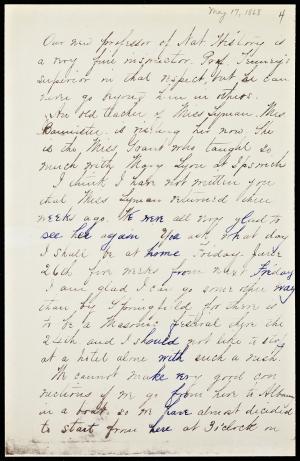 May 17, 1868
4
Our new professor of Nat. History is
a very fine instructor. Prof. Tenney's
superior in that respect, but he can
never go beyond him in others.
An old teacher of Miss Lyman, Mrs
Bannister, is visiting her now. She
is the Miss Grant who taught so
much with Mary Lyon at Ipswich
I think I have not written you
that Miss Lyman returned three
weeks ago. We were all very glad to
see her again. You ask what day
I shall be at home. Friday June
26th five weeks from next Friday
I am glad I can go some other way
than by Springfield for there is
to be a Masonic festival there the
24th and I should not like to stop
at a hotel alone with such a
We cannot make very good con
nections if we go from here to Albany
in a boat, so we have almost decided
to start from here at 9 o'clock on